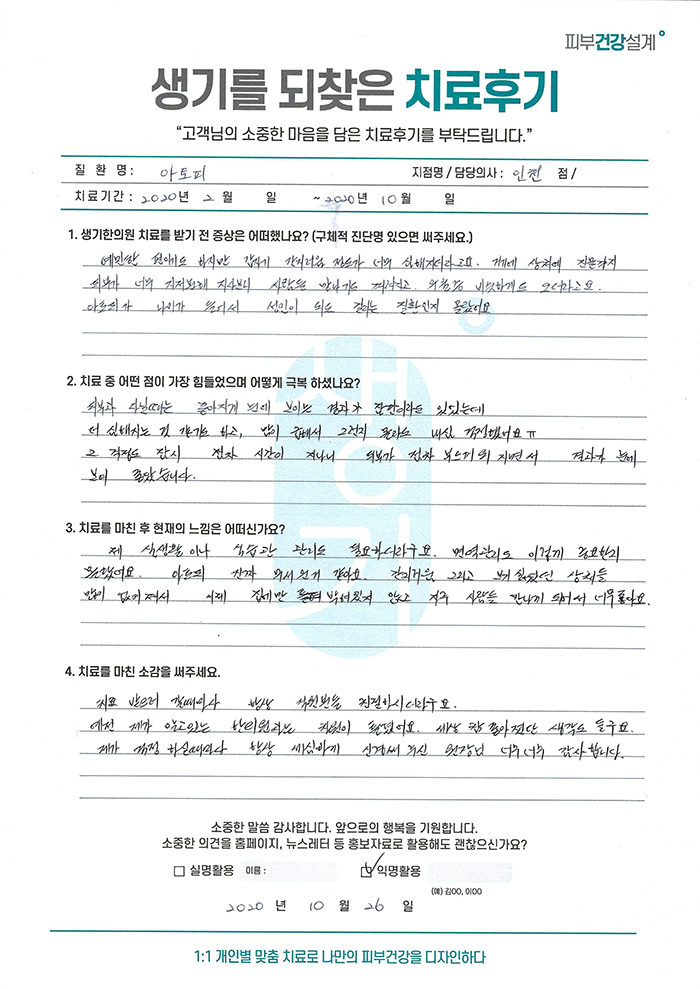 피부건강설계
생기를 되찾은 치료후기
“고객님의 소중한 마음을 담은 치료후기를 부탁드립니다.”
질 환 명 : 아토피 지점명 / 담당의사 : 인천 점 /
치료기간 : 2020년 2월 일 ~2020년 10월 일
1. 생기한의원 치료를 받기 전 증상은 어떠했나요? (구체적 진단명 있으면 써주세요.)
예민한 편이기도 하지만 갑자기 간지러움 정도가 너무 심해지더라고요. 거기에 상처에 진물까지
피부가 너무 지저분해 지다보니 사람들 만나기도 꺼려지고.
아토피가 나이가 들어서 성인이 되도 걸리는 질환인지 몰랐어요
2. 치료 중 어떤 점이 가장 힘들었으며 어떻게 극복 하셨나요?
피부과 다닐때는 좋아지게 눈에 보이는 결과가 잠깐이라도 있었는데
더 심해지는 것 같기도 하고, 맘이 급해서 그런지 몰라도 내심 걱정했어요 ㅠ
그 걱정도 잠시 점차 시간이 지나니 피부가 점차 부드러워 지면서 결과가 눈에
보여 좋았습니다.
3. 치료를 마친 후 현재의 느낌은 어떠신가요?
제 식생활이나 습관 관리도 필요하더라구요. 면역관리도 이렇게 중요한지
몰랐어요. 아토피 진짜 무서운거 같아요. 간지러움 그리고 보기 싫었던 상처들
많이 없어져서 이제 집에만 틀혀박혀있지 않고 자주 사람들 만나게 되어서 너무 좋아요.
4. 치료를 마친 소감을 써주세요.
치료 받으러 갈때마다 항상 직원분들 친절하시더라구요.
예전 제가 알고있는 한의원과는 차원이 틀렸어요. 세상 참 좋아졌단 생각도 들구요.
제가 걱정 하실때마다 항상 세심하게 신경써 주신 원장님 너무너무 감사합니다.
소중한 말씀 감사합니다. 앞으로의 행복을 기원합니다.
소중한 의견을 홈페이지, 뉴스레터 등 홍보자료로 활용해도 괜찮으신가요?
실명활용 이름 : 익명활용
(예) 김OO, 이OO
2020 년 10 월 26 일
1:1 개인별 맞춤 치료로 나만의 피부건강을 디자인하다
생기